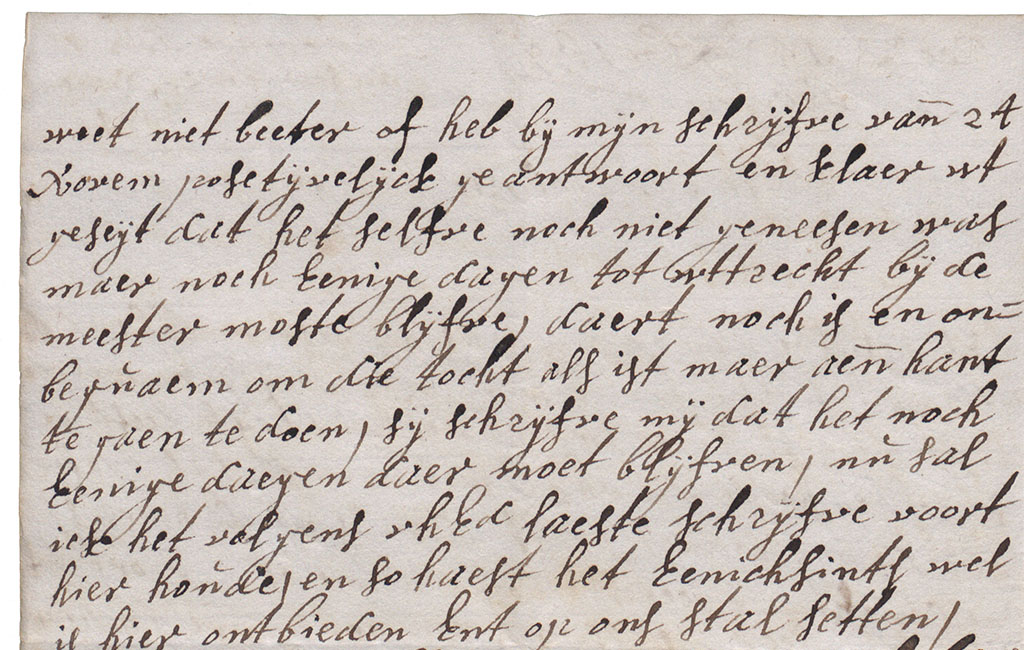 weet niet beeter of heb bÿ mÿn schrÿfve van 24
Novem posetÿvelÿck geantwoort en klaer wt
geseÿt dat het selfve noch niet geneesen was
maer noch Eenige dagen tot wttrecht bÿ de
meester moste blÿfve, daert noch is en on=
bequaem om die tocht als ist maer aen hant
te gaen te doen, sÿ schrÿfve mÿ dat het noch
Eenige daegen daer moet blÿfven, nu sal
ick het volgens vhEd laeste schrÿfve voort
hier houde, en so haest het Eenichsints wel
is hier ontbieden Ent op ons stal setten,